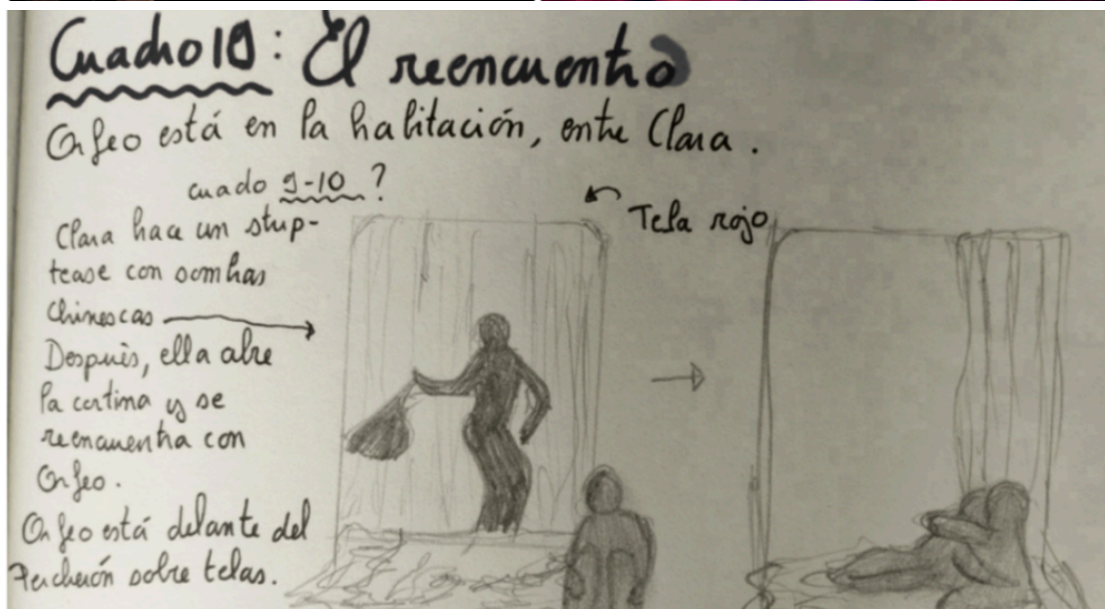 Cuadro 10: El reencuentro
Orfeo está en la habitación, entre Clara.
cuadro 9-10 ?
Tela rojo
Clara hace un strip-
tease con sombras
Chinescas
Después, ella abre
la cortina y se
reencuentra con
Orfeo.
Orfeo está delante del
Percherón sobre telas.